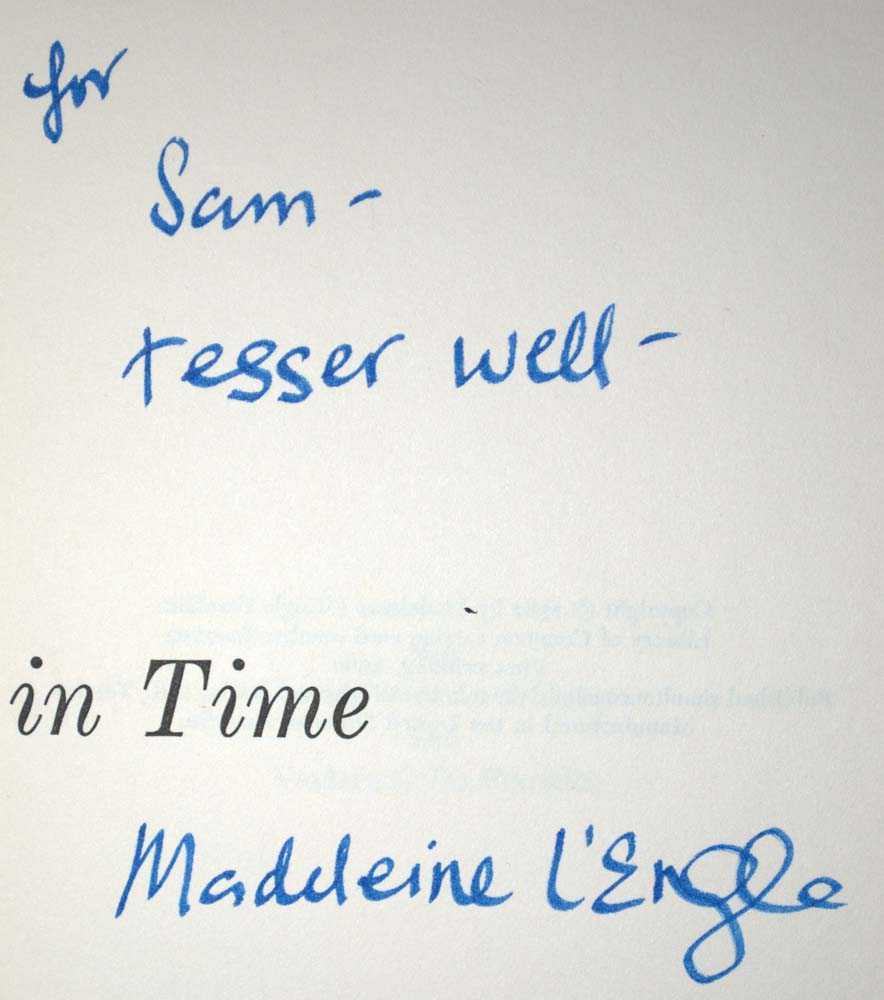 for
Sam -
tesser well -
in Time
Madeleine L'Engle